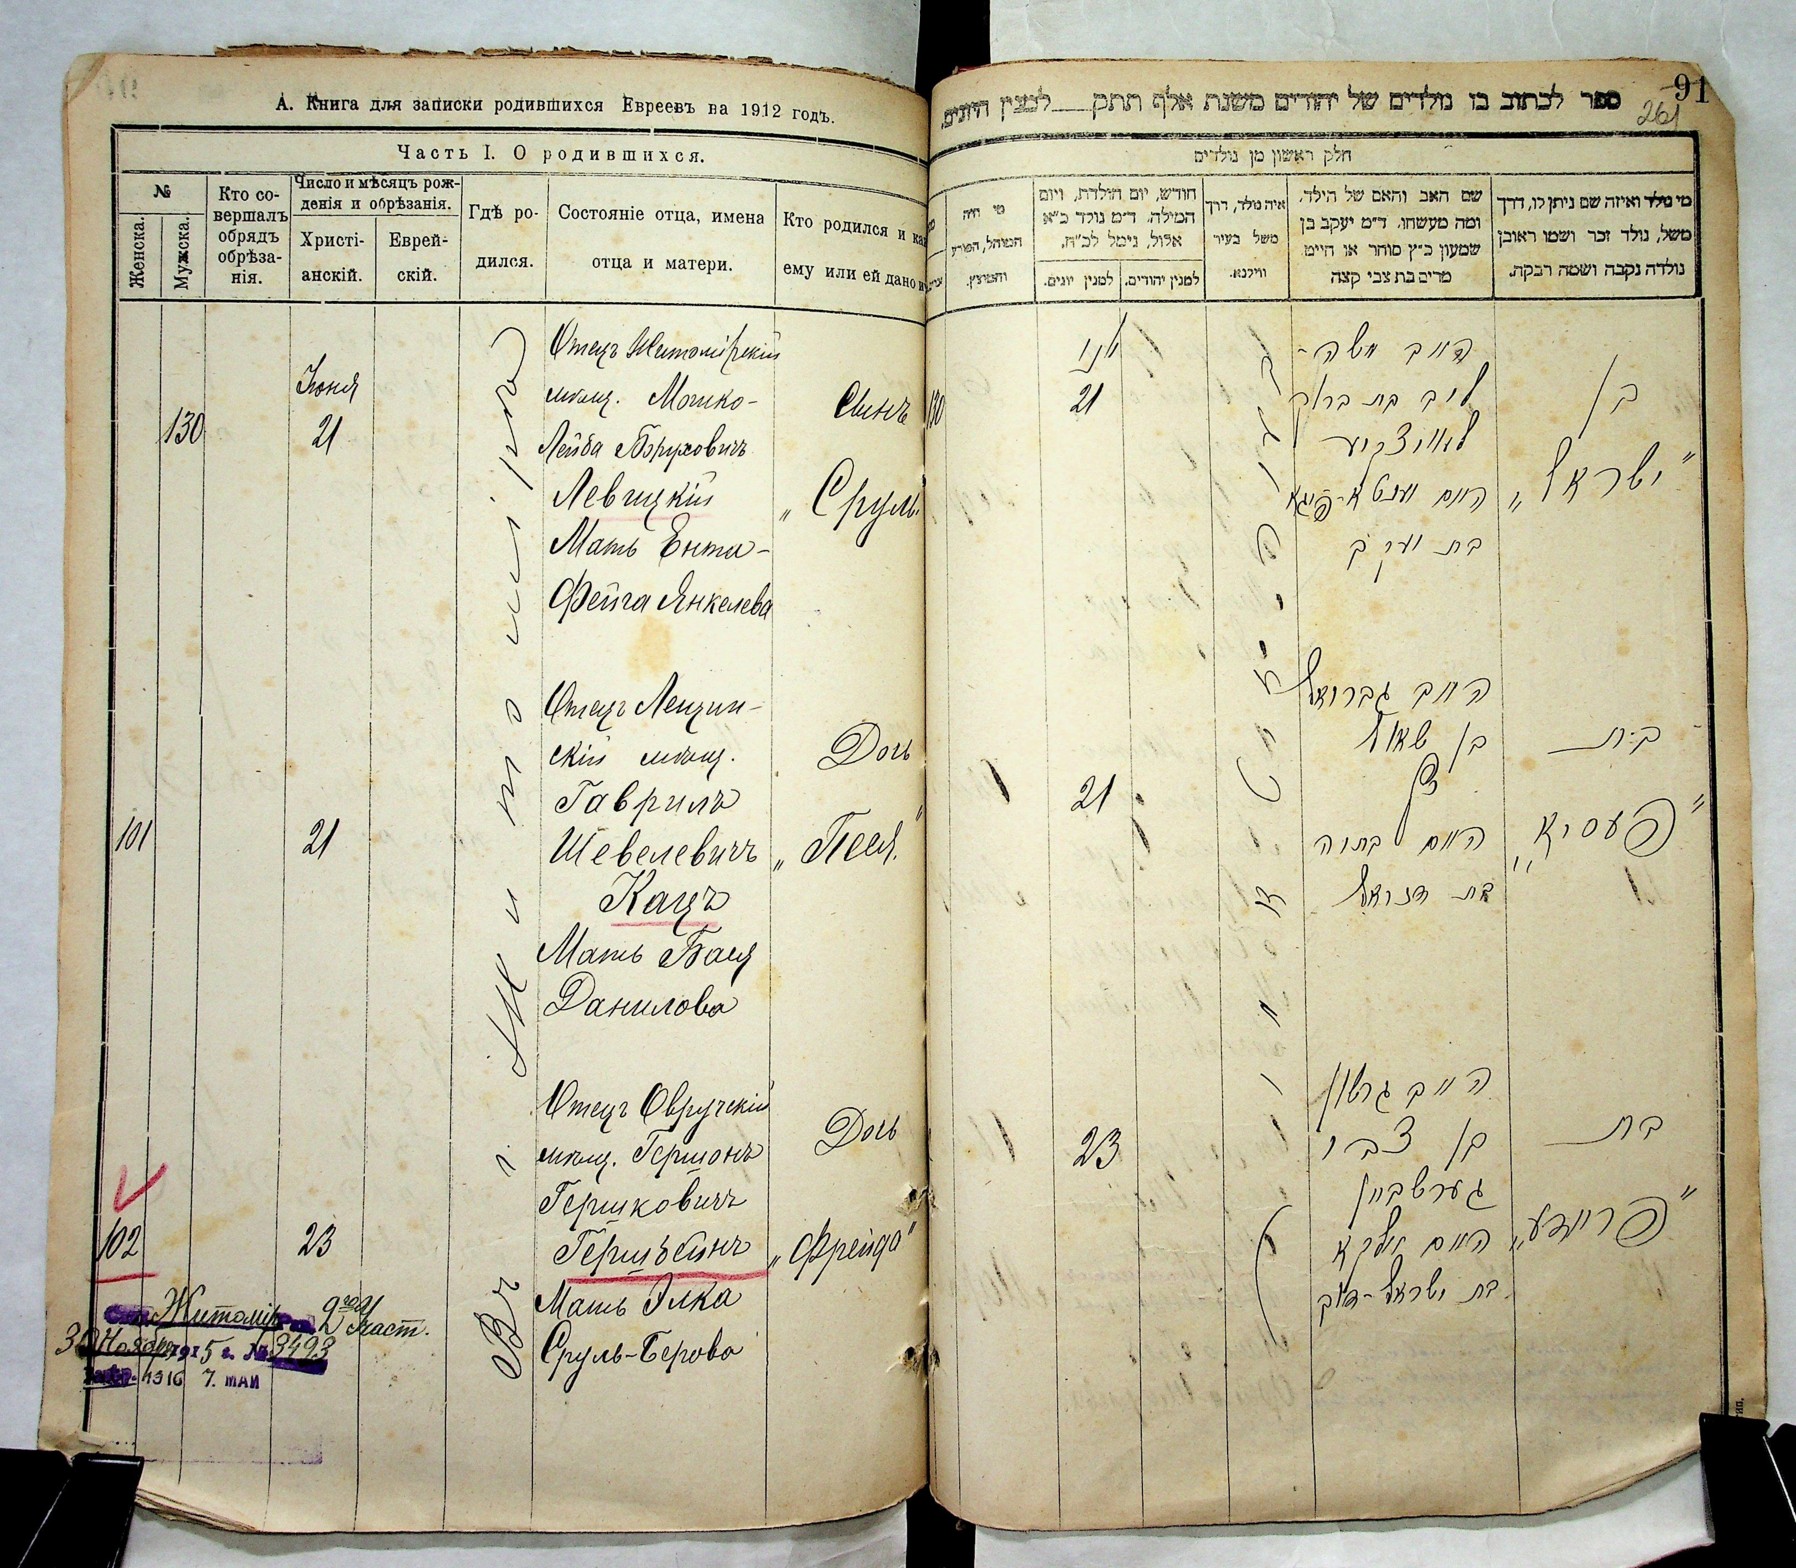 А. Книга для записки родившихся Евреевъ на 1912 годъ.
Часть I. О родившихся.
№
Женска.
Мужска.
Кто со-
вершалъ
обрядъ
обрѣза-
нія.
Число и мѣсяцъ рож-
денія и обрѣзанія.
Христі-
анскій.
Еврей-
скій.
Гдѣ ро-
дился.
Состояніе отца, имена
отца и матери.
Кто родился и
ему или ей дано
130
Іюня
21
Въ г. Житомірѣ
Отецъ Житомірскій
мѣщ. Мошко-
Лейба Боруховичъ
Левицкій
Мать Ента-
Фейга Янкелева
Сынъ
„Сруль“
101
21
Отецъ
скій мѣщ.
Гаврилъ
Шевелевичъ
Кацъ
Мать Бася
Данилова
Дочь
„Песя“
102
23
Отецъ Овручскій
мѣщ. Гершонъ
Гершковичъ
Гершбейнъ
Мать Элка
Сруль-Берова
Дочь
„Фрейда“
Житомір 2го Участ.
30 Ноября 1915 г. № 3493
1916 7. МАЙ
91
261
ספר לכתוב בו נולדים של יהודים משנת אלף תתק למנין היונים.
חלק ראשון מן נולדים
מי נולד ואיזה שם ניתן לו, דרך
משל, נולד זכר ושמו ראובן
נולדה נקבה ושמה רבקה.
שם האב והאם של הילד,
ומה מעשהו. ד״מ יעקב בן
שמעון כ״ץ סוחר או חייט
מרים בת צבי קצה
איה נולד, דרך
משל בעיר
ווילנא.
חודש, יום הולדת, ויום
המילה. ד״מ נולד כ״א
אלול, נימל לכ״ח.
למנין יהודים.
למנין יונים.
מי היה
המוהל, הפורע
והמוצץ.
130
21
האב משה-
ליב בן ברוך
לעוויצקיער
האם יענטא-פייגא
בת יעקב
בן
„ישראל“
21
האב גבריאל
בן שאול
כץ
האם בתיה
בת דניאל
בת
„פעסיא“
23
האב גרשון
בן צבי
גערשביין
האם עלקא
בת ישראל-דוב
בת
„פריידע“